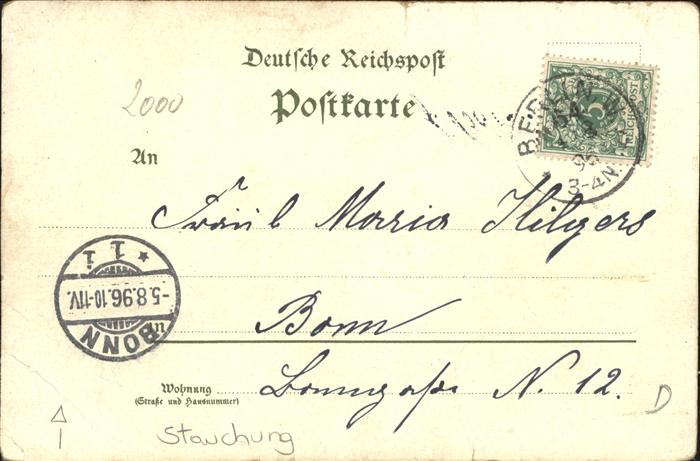 Deutsche Reichspost
Postkarte
2000
BERLIN W.
96
3-4N.
REICHSPOST
5
An
Fräul Maria Hilgers
1 i
-5.8.96.10-11V.
BONN
in
Bonn
Wohnung
(Straße und Hausnummer)
N. 12.
D
Stauchung